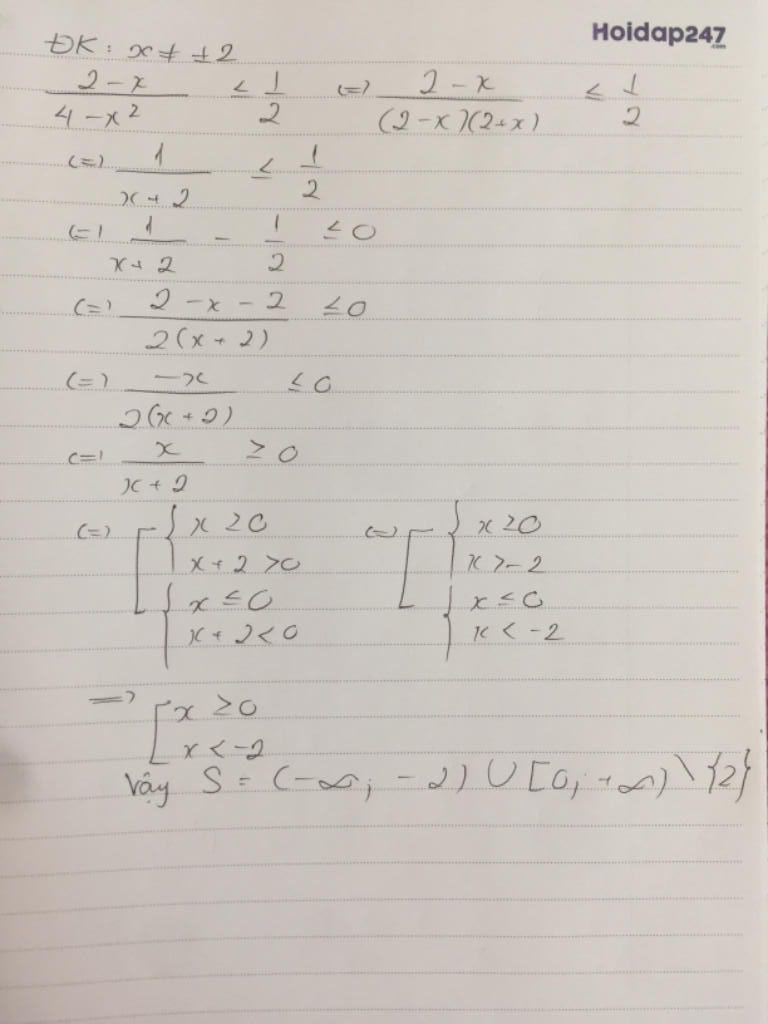 Hoidap247
.com
ĐK: x ≠ ±2
(2 - x)/(4 - x²) ≤ 1/2 (=) (2 - x)/((2 - x)(2 + x)) ≤ 1/2
(=) 1/(x + 2) ≤ 1/2
(=) 1/(x + 2) - 1/2 ≤ 0
(=) (2 - x - 2)/(2(x + 2)) ≤ 0
(=) (-x)/(2(x + 2)) ≤ 0
(=) x/(x + 2) ≥ 0
(=) [ { x ≥ 0 (=) [ { x ≥ 0
x + 2 > 0 x > -2
{ x ≤ 0 { x ≤ 0
x + 2 < 0 x < -2
=> [ x ≥ 0
x < -2
Vậy S = (-∞; -2) ∪ [0; +∞) \ {2}